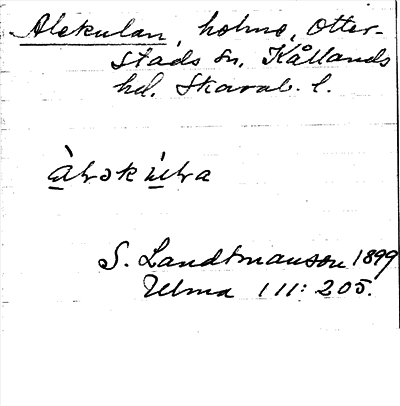 Alekulan, holme, Otter-
stads sn, Kållands
hd. Skarab. l.
S. Landtmanson 1899
Ulma 111: 205.